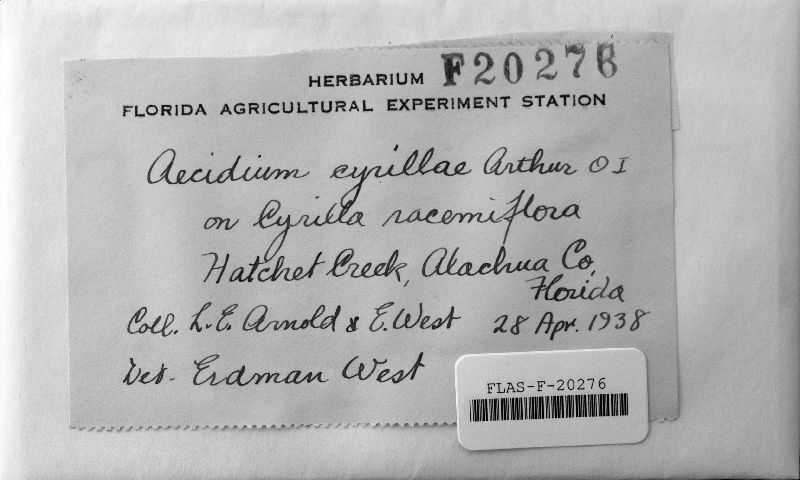 HERBARIUM F20276
FLORIDA AGRICULTURAL EXPERIMENT STATION
Aecidium cyrillae Arthur O I
on Cyrilla racemiflora
Hatchet Creek, Alachua Co,
Florida
Coll. L.E. Arnold & E. West 28 Apr. 1938
Det. Erdman West
FLAS-F-20276